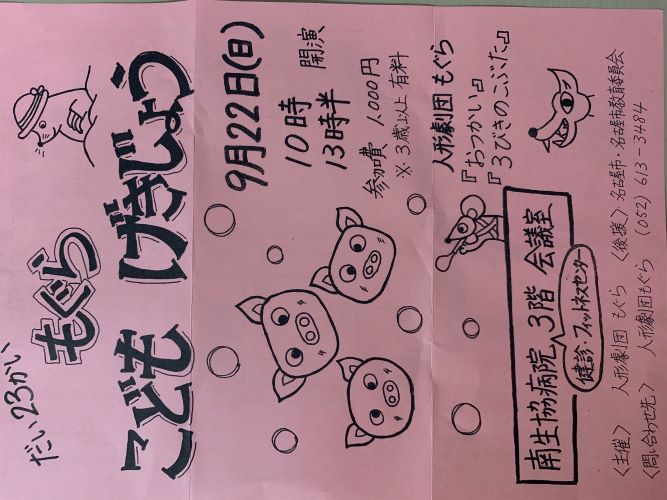 だい23かい
もぐら
こども げきじょう
9月22日(日)
10時
13時半 開演
参加費 1,000円
※3歳以上有料
人形劇団 もぐら
『おつかい』
『3びきのこぶた』
南生協病院 3階 会議室
健診・フィットネスセンター
〈主催〉 人形劇団 もぐら 〈後援〉名古屋市・名古屋市教育委員会
〈問い合わせ先〉 人形劇団もぐら (052) 613-3484